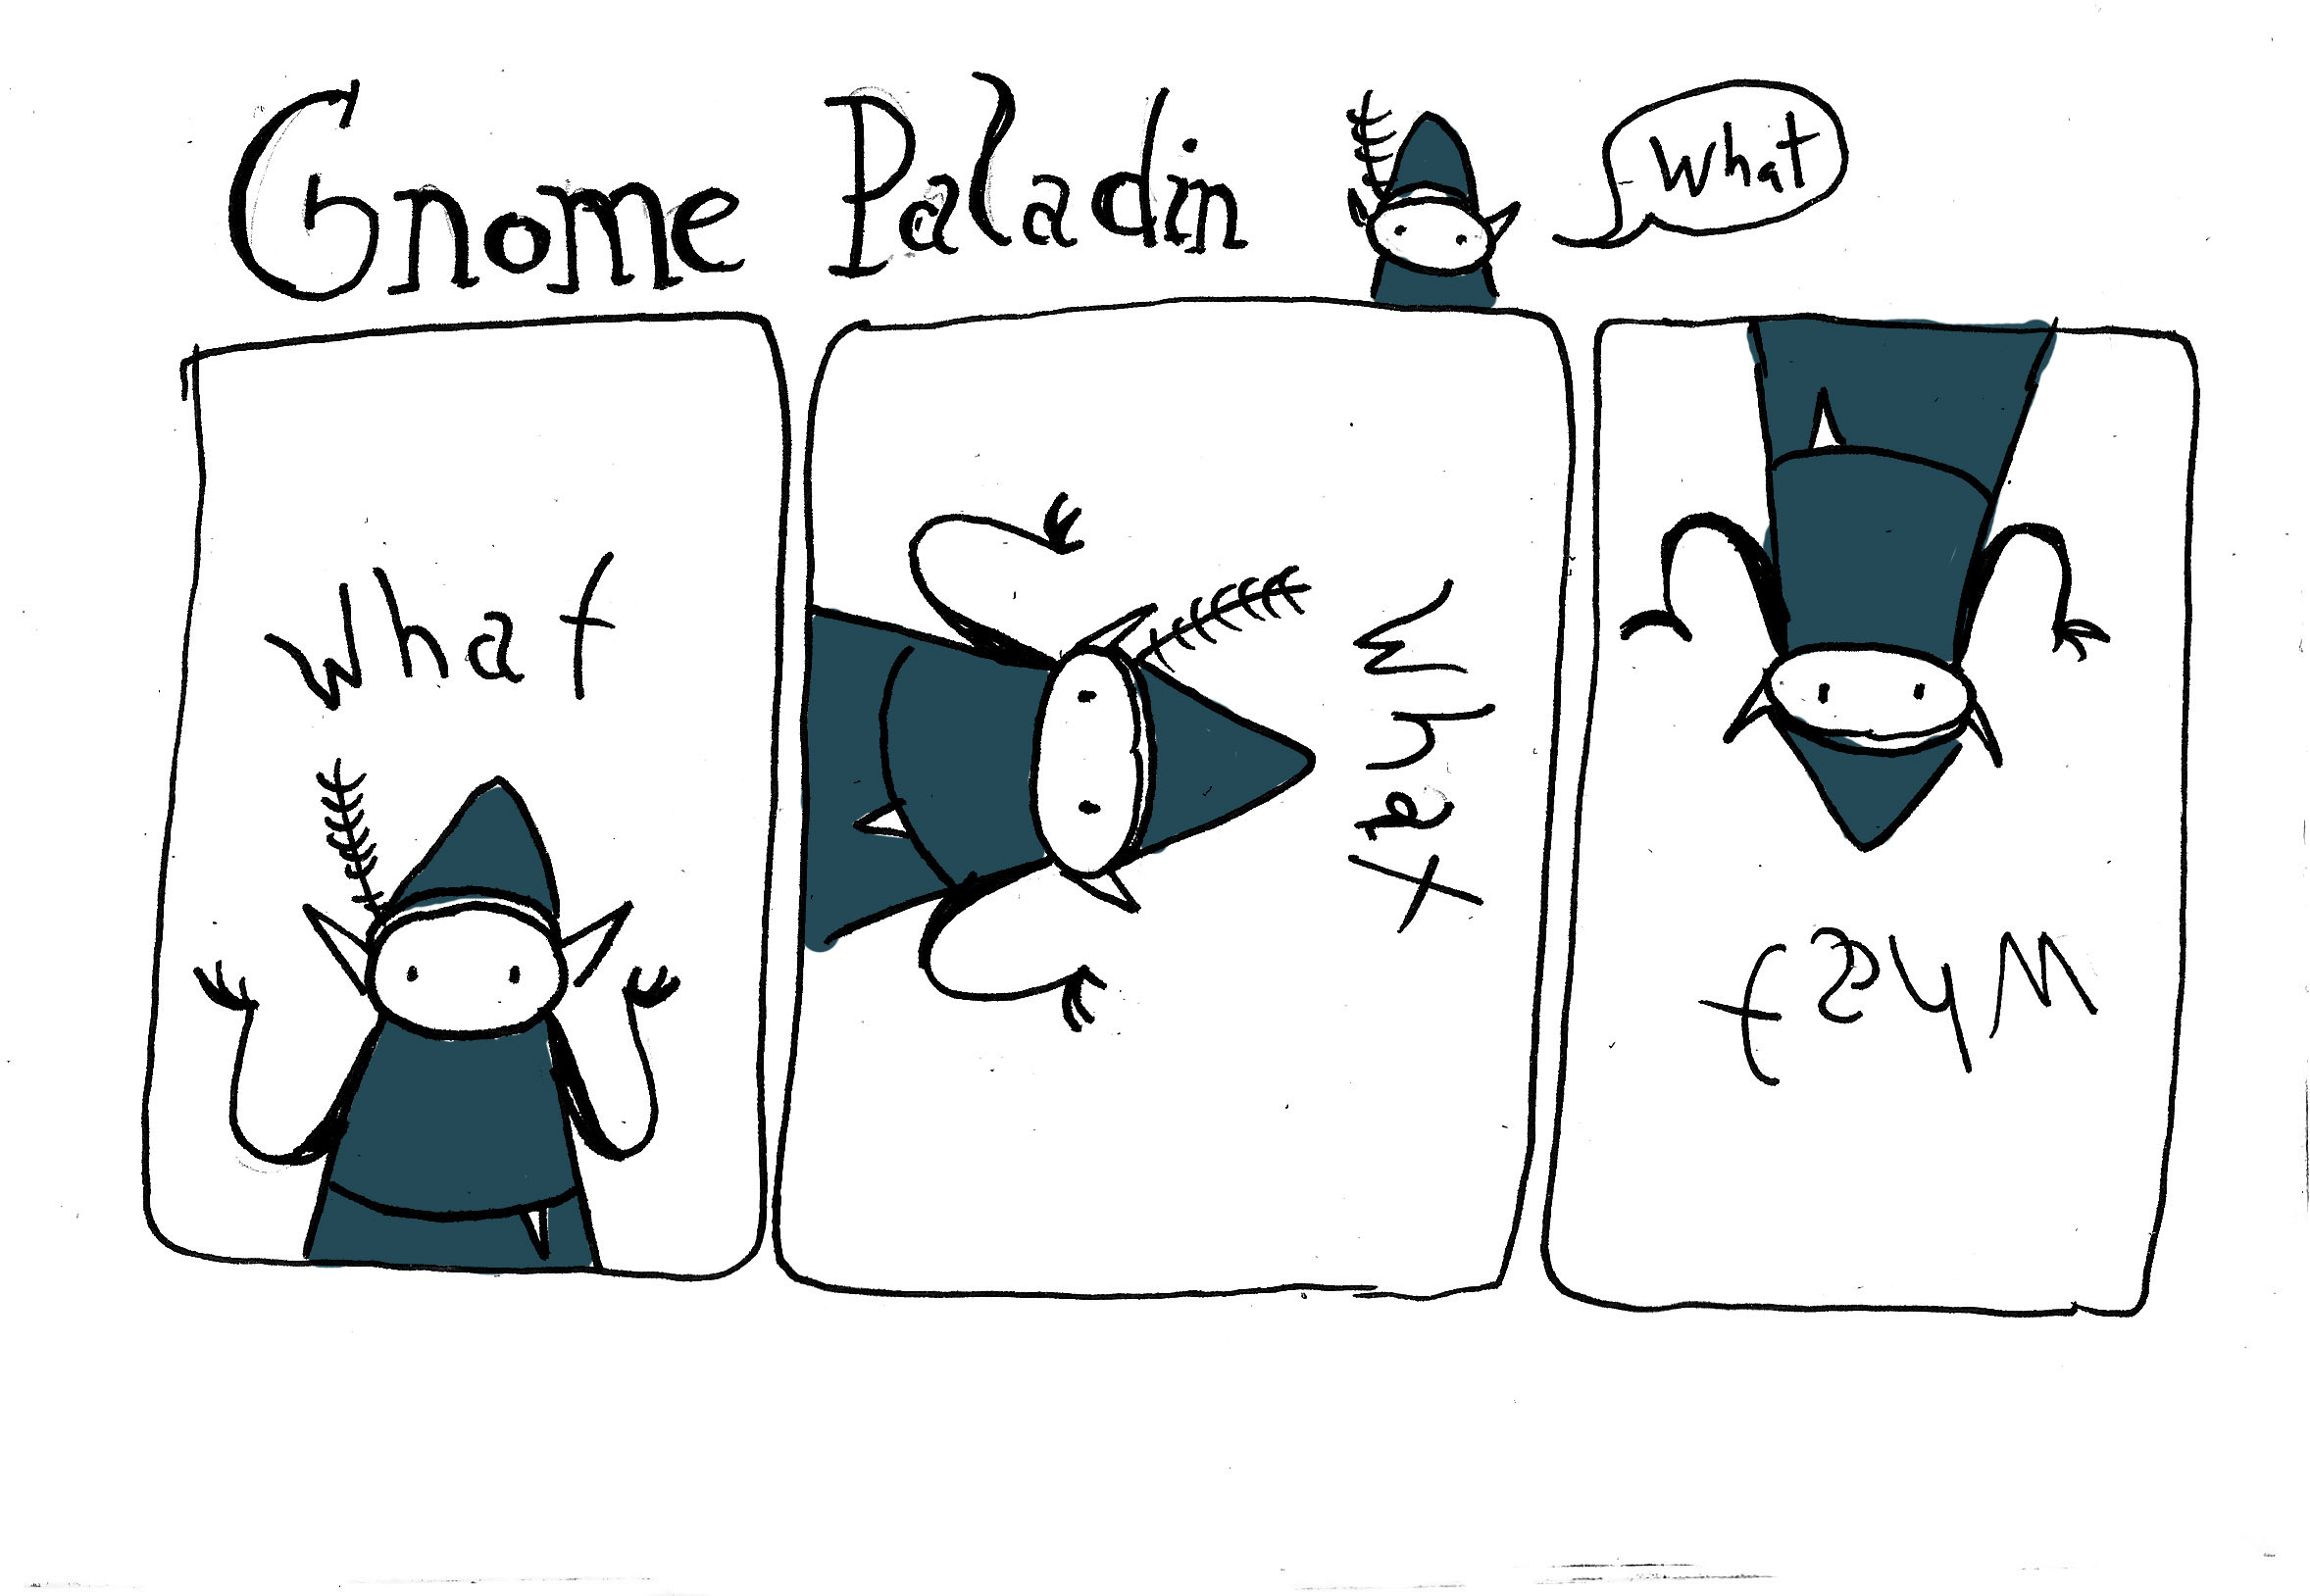 Gnome Paladin
What
What
What
What